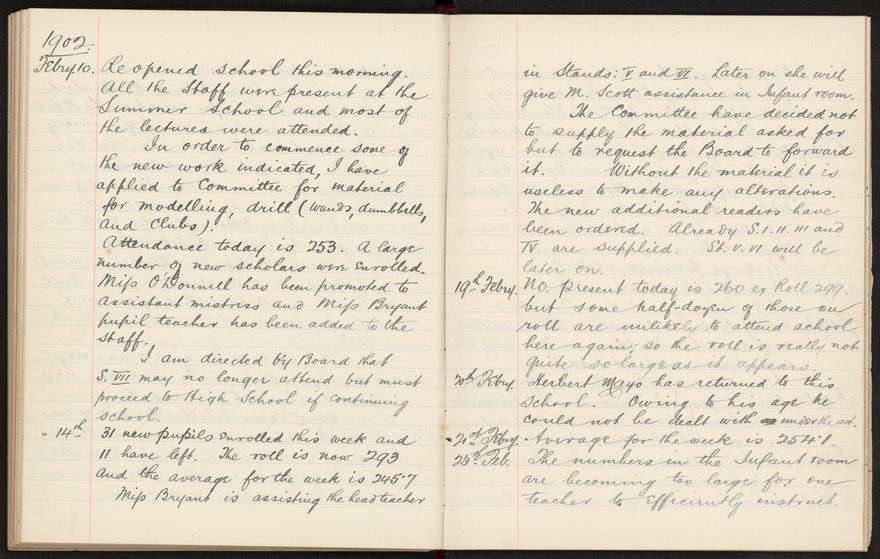 1902.
Febry 10. Re opened school this morning.
All the Staff were present at the
Summer School and most of
the lectures were attended.
In order to commence some of
the new work indicated, I have
applied to Committee for material
for modelling, drill (wands, dumbbells,
and clubs).
Attendance today is 253. A large
number of new scholars were enrolled.
Miss O'Donnell has been promoted to
assistant mistress and Miss Bryant
pupil teacher has been added to the
staff.
I am directed by Board that
S. VII may no longer attend but must
proceed to High School if continuing
school.
" 14th 31 new pupils enrolled this week and
11 have left. The roll is now 293
and the average for the week is 245.7
Miss Bryant is assisting the headteacher
in Stands: V and VI. Later on she will
give M. Scott assistance in Infant room.
The Committee have decided not
to supply the material asked for
but to request the Board to forward
it. Without the material it is
useless to make any alterations.
The new additional readers have
been ordered. Already S. I. II. III and
IV. are supplied. St. V. VI will be
later on.
19th Febry. No. present today is 260 ex Roll 299.
but some half-dozen of those on
roll are unlikely to attend school
here again; so the roll is really not
quite so large as it appears.
20th Febry. Herbert Mayo has returned to this
School. Owing to his age he
could not be dealt with under the act.
21st Febry Average for the week is 254.1.
25th Feb. The numbers in the Infant room
are becoming too large for one
teacher to efficiently instruct.